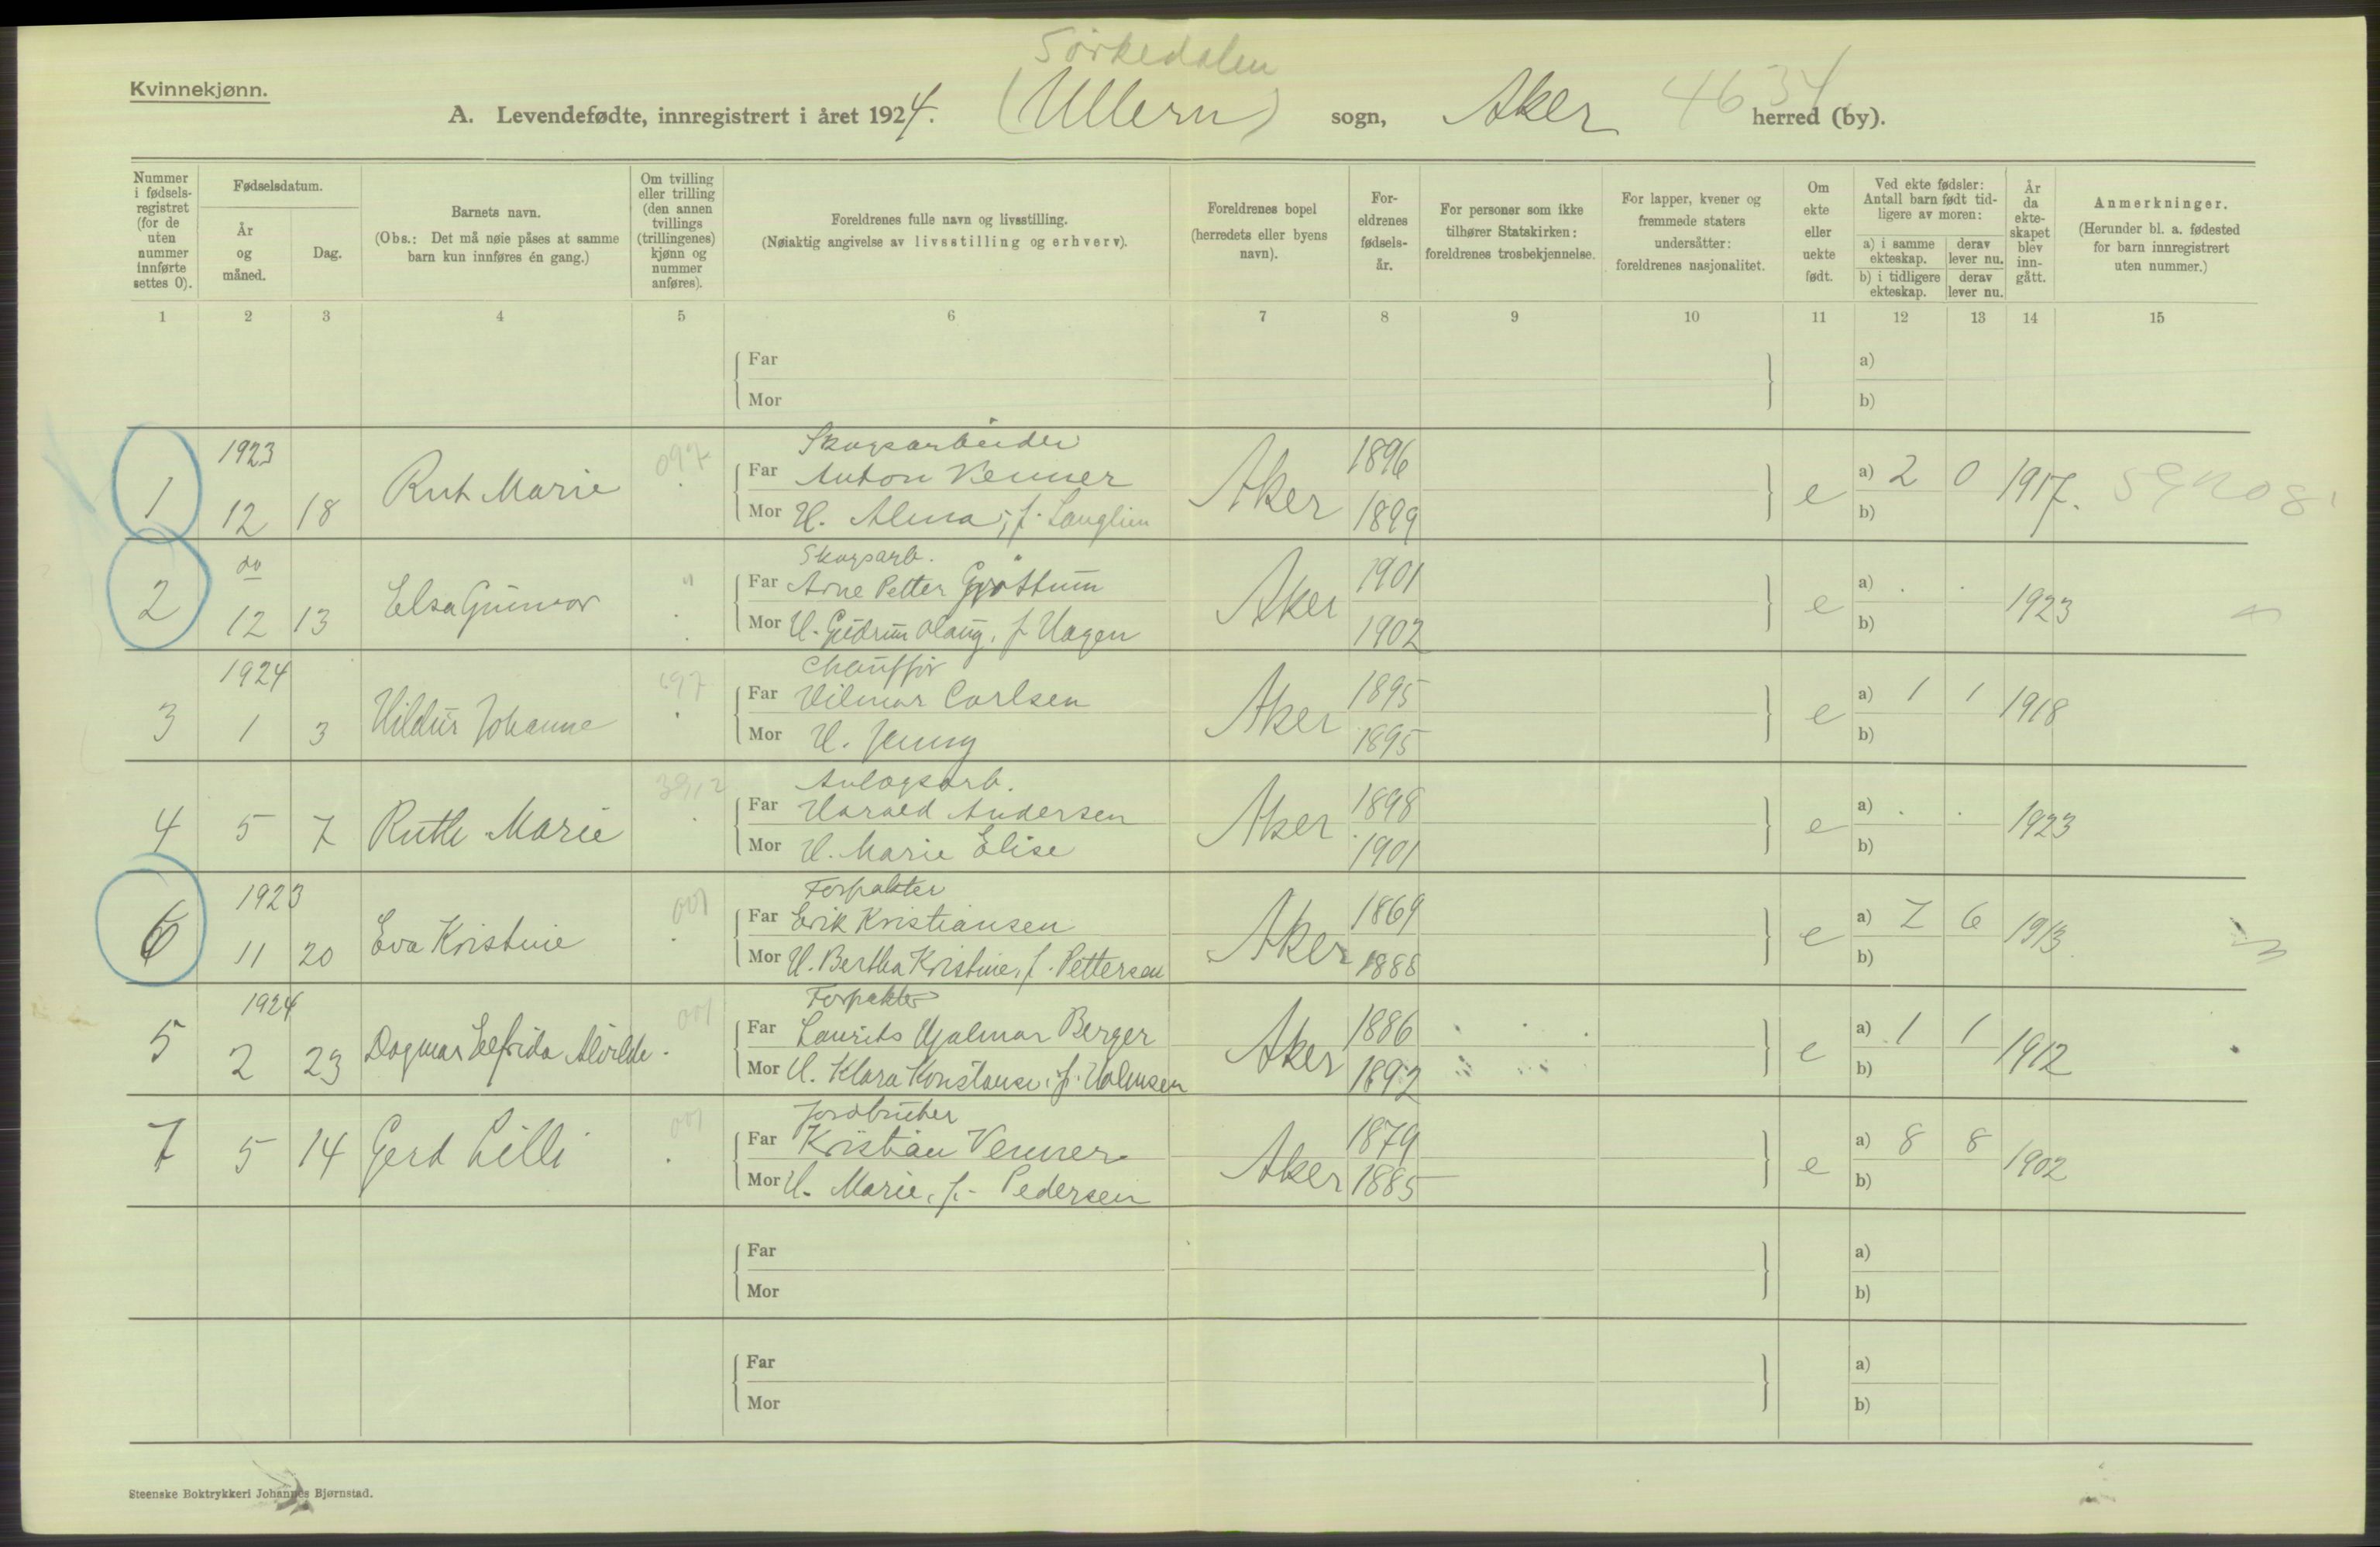 Sörkedalen
Kvinnekjønn.
A. Levendefødte, innregistrert i året 1924. (Ullern) sogn, Aker 4634 herred (by).
Nummer i fødsels-registret (for de uten nummer innførte settes 0).
Fødselsdatum.
År og måned.
Dag.
Barnets navn.
(Obs.: Det må nøie påses at samme barn kun innføres én gang.)
Om tvilling eller trilling (den annen tvillings (trillingenes) kjønn og nummer anføres).
Foreldrenes fulle navn og livsstilling.
(Nøiaktig angivelse av livsstilling og erhverv).
Foreldrenes bopel (herredets eller byens navn).
For-eldrenes fødsels-år.
For personer som ikke tilhører Statskirken: foreldrenes trosbekjennelse.
For lapper, kvener og fremmede staters undersåtter: foreldrenes nasjonalitet.
Om ekte eller uekte født.
Ved ekte fødsler: Antall barn født tid-ligere av moren:
a) i samme ekteskap. derav lever nu.
b) i tidligere ekteskap. derav lever nu.
År da ekte-skapet blev inn-gått.
Anmerkninger.
(Herunder bl. a. fødested for barn innregistrert uten nummer.)
1 2 3 4 5 6 7 8 9 10 11 12 13 14 15
Far a)
Mor b)
1923 Skogsarbeider
1 12 18 Rut Marie 097 Far Anton Venner Aker 1896 e a) 2 0 1917.
Mor H. Alma, f. Langlien 1899 b)
do Skogsarb.
2 12 13 Elsa Gunvor " Far Arne Petter Grøttum Aker 1901 e a) . . 1923
Mor H. Gudrun Olaug, f. Hagen 1902 b)
1924 Chauffør
3 1 3 Hildur Johanne 697 Far Hilmar Carlsen Aker 1895 e a) 1 1 1918
Mor H. Jenny 1895 b)
Anlagsarb.
4 5 7 Ruth Marie Far Harald Andersen Aker 1898 e a) . . 1923
Mor H. Marie Elise 1901 b)
1923 Forpakter
6 11 20 Eva Kristine 001 Far Erik Kristiansen Aker 1869 e a) 7 6 1913
Mor H. Bertha Kristine, f. Pettersen 1888 b)
1924 Forpakter
5 2 23 Dagmar Elfrida Alvilde 001 Far Laurits Hjalmar Berger Aker 1886 e a) 1 1 1912
Mor H. Klara Konstanse, f. Holmsen 1892 b)
Jordbruker
7 5 14 Gerd Lilli 001 Far Kristian Venner Aker 1879 e a) 8 8 1902
Mor H. Marie, f. Pedersen 1885 b)
Far a)
Mor b)
Far a)
Mor b)
Steenske Boktrykkeri Johannes Bjørnstad.